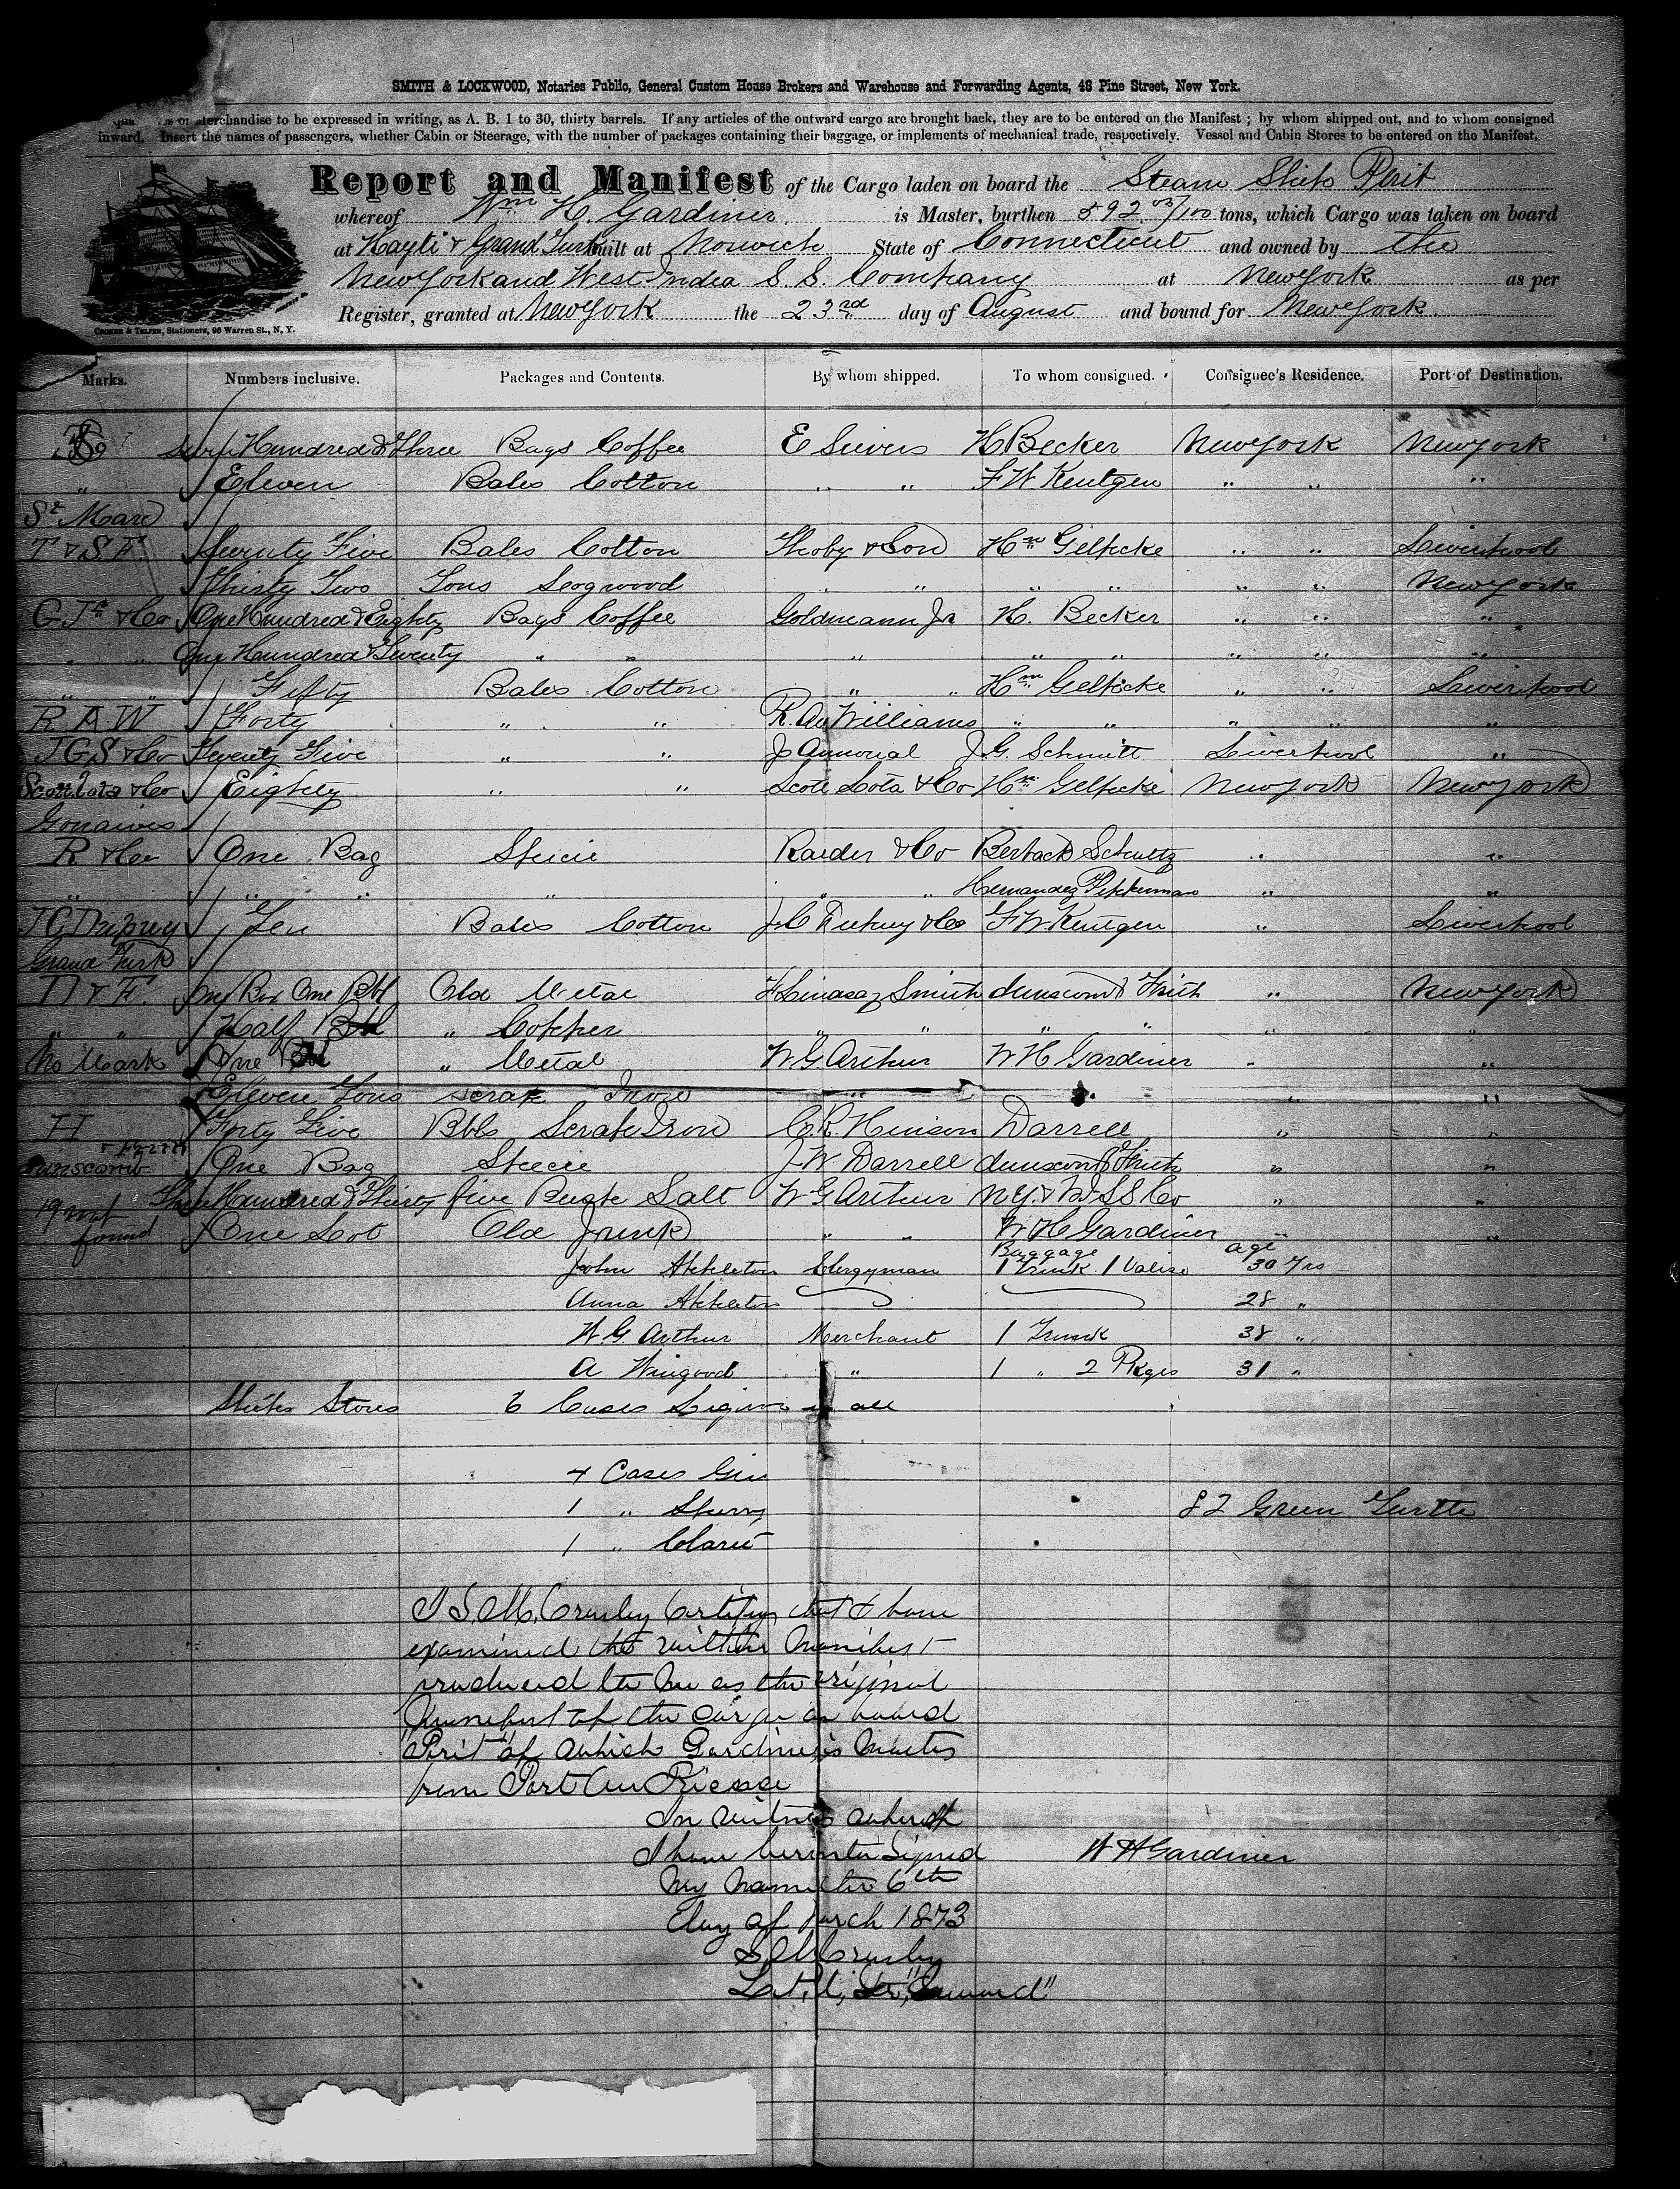 SMITH & LOCKWOOD, Notaries Public, General Custom House Brokers and Warehouse and Forwarding Agents, 48 Pine Street, New York.
of Merchandise to be expressed in writing, as A. B. 1 to 30, thirty barrels. If any articles of the outward cargo are brought back, they are to be entered on the Manifest ; by whom shipped out, and to whom consigned
inward. Insert the names of passengers, whether Cabin or Steerage, with the number of packages containing their baggage, or implements of mechanical trade, respectively. Vessel and Cabin Stores to be entered on the Manifest.
Report and Manifest of the Cargo laden on board the Steam Ship Perit
whereof Wm H. Gardiner is Master, burthen 592 03/100 tons, which Cargo was taken on board
at Hayti & Grand Turk built at Norwich State of Connecticut and owned by the
New York and West India S. S. Company at New York as per
Register, granted at New York the 23rd day of August and bound for New York
CROKER & TELFER, Stationers, 96 Warren St., N. Y.
Marks. Numbers inclusive. Packages and Contents. By whom shipped. To whom consigned. Consignee's Residence. Port of Destination.
Hundred & Three Bags Coffee E Sievers H Becker New York New York
" Eleven Bales Cotton " " F W Keutgen " " "
St Marc
T & S F. Seventy Five Bales Cotton Hn Gelpcke " " Liverpool
Thirty Two Tons Logwood " " " " " " New York
G Jr & Co One Hundred & Eighty Bags Coffee Goldmann Jr H. Becker " " "
" " One Hundred & Twenty " " " " " " " "
" " Fifty Bales Cotton " " Hn Gelpcke " " Liverpool
R A W Forty " " R. A. Williams " " " " "
J G S & Co Seventy Five " " J. G. Schmitt Liverpool "
Scott Lota & Co Eighty " " Scott Lota & Co Hn Gelpcke New York New York
Gonaives
R & Co One Bag Specie Raeder & Co Schultz " "
" " " " " " " Hernandez " "
J C Dupuy Ten Bales Cotton J. C Dupuy & Co F W Keutgen " Liverpool
Grand Turk
D & F. One Box One Bbl Old Metal F Lindsay Smith Dunscomb & Frith " New York
" " Half Bbl " Copper " " " " " "
No Mark One Bbl " Metal W G. Arthur W H Gardiner " "
Eleven Tons scrap Iron " " "
H Forty Five Bbls Scrap Iron G. R. Hinson Darrell " "
Dunscomb & Frith One Bag Specie J. W Darrell Dunscomb & Frith " "
Three Hundred & Thirty five Bush Salt W G Arthur N Y. & W I S S Co "
19 not found One Lot Old Junk " " W H Gardiner " "
John Appleton Clergyman Baggage 1 Trunk 1 Valise age 30 Yrs
Anna Appleton 28 "
W. G. Arthur Merchant 1 Trunk 38 "
A Wingood " 1 " 2 Pkges 31 "
Ships Stores 6 Cases Liquors in all
4 Cases Gin
1 " Sherry
1 " Claret
82 Green Turtle
I S. M. Crosby Certify that I have
examined the within Manifest
produced to me as the original
Manifest of the cargo on board
"Perit" of which Gardiner is Master
from Port Au Prince
In witness whereof
I have hereunto Signed
W H Gardiner
My name this 6th
day of March 1873
S M Crosby